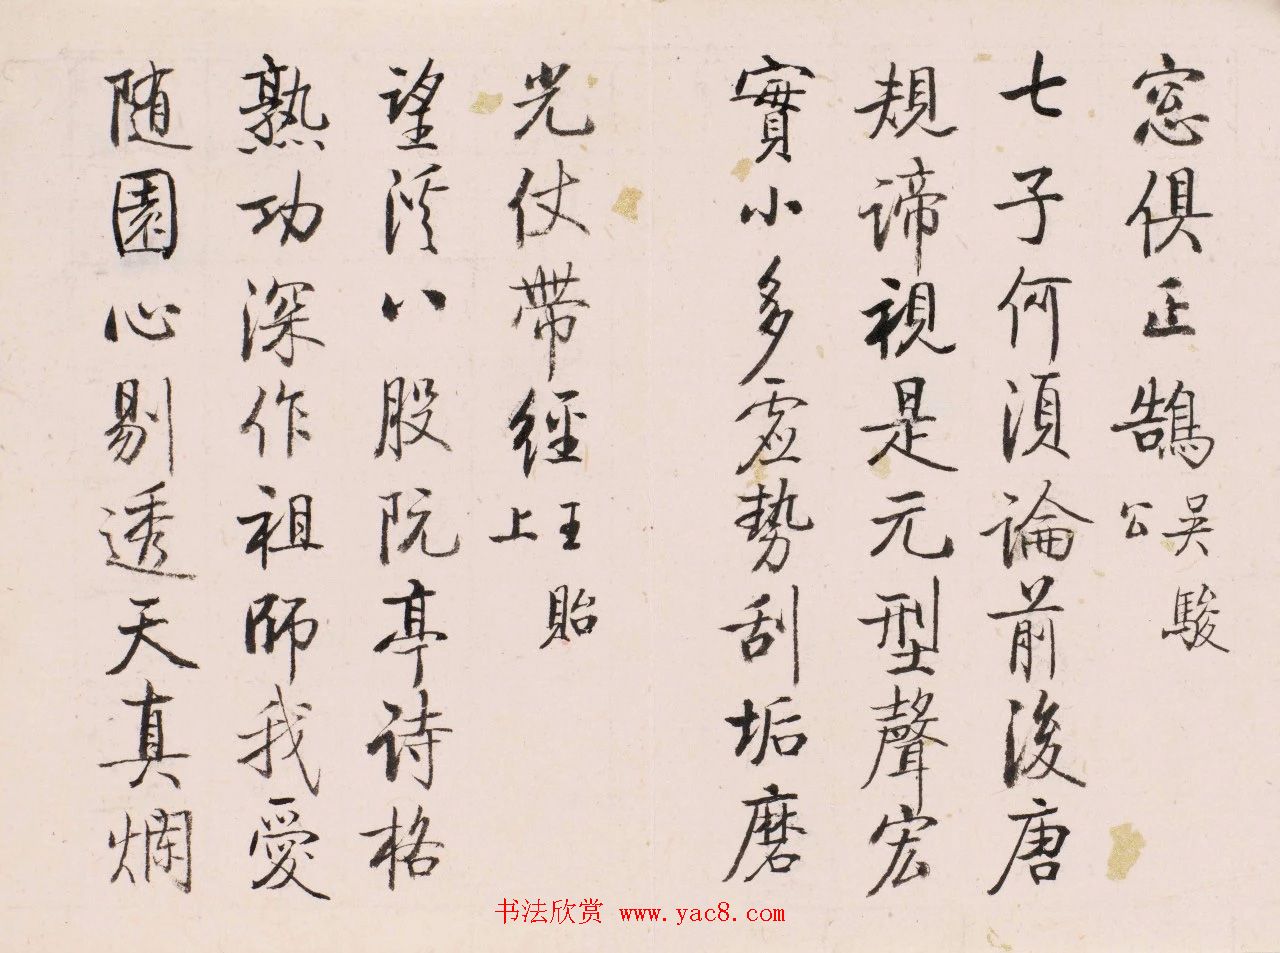 窓俱正鵠 吳駿公
七子何須論前後唐
規諦視是元型聲宏
實小多虛勢刮垢磨
光仗帶經 王貽上
望溪八股阮亭诗格
熟功深作祖師我愛
随園心剔透天真爛
书法欣赏 www.yac8.com